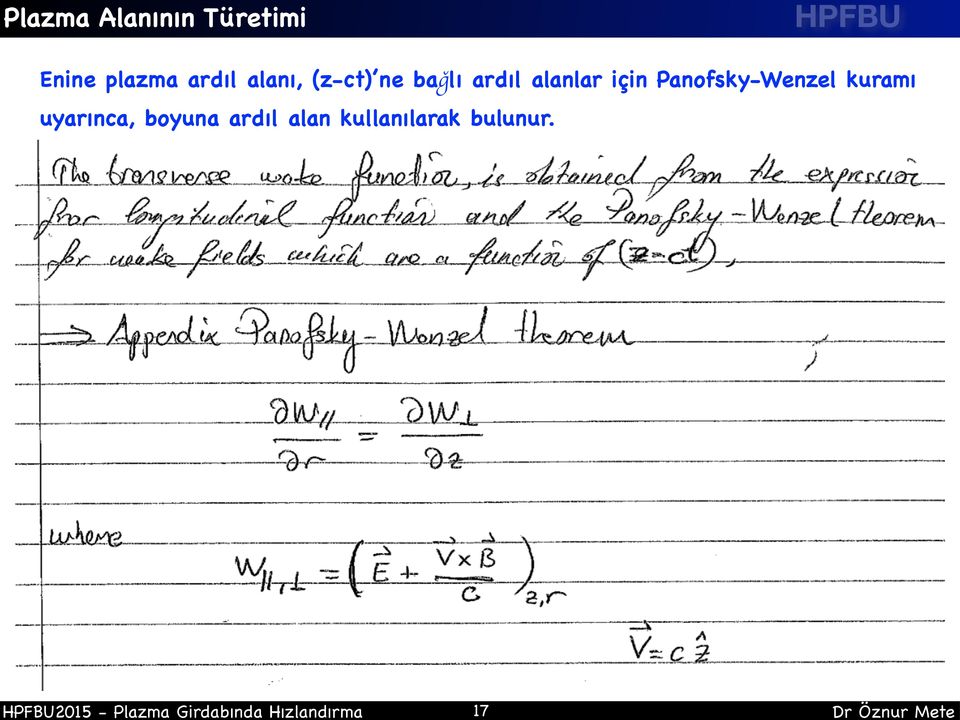 Plazma Alanının Türetimi
HPFBU
Enine plazma ardıl alanı, (z-ct)’ne bağlı ardıl alanlar için Panofsky-Wenzel kuramı
uyarınca, boyuna ardıl alan kullanılarak bulunur.
The transverse wake function, is obtained from the expression
from longitudinal function and the Panofsky-Wenzel theorem
for wake fields which are a function of (z-ct),
⇒ Appendix Panofsky-Wenzel theorem ;
∂W∥/∂r = ∂W⊥/∂z
where
W∥,⊥ = (E⃗ + V⃗ x B⃗ / c)z,r
V⃗ = c ẑ
HPFBU2015 - Plazma Girdabında Hızlandırma 17 Dr Öznur Mete